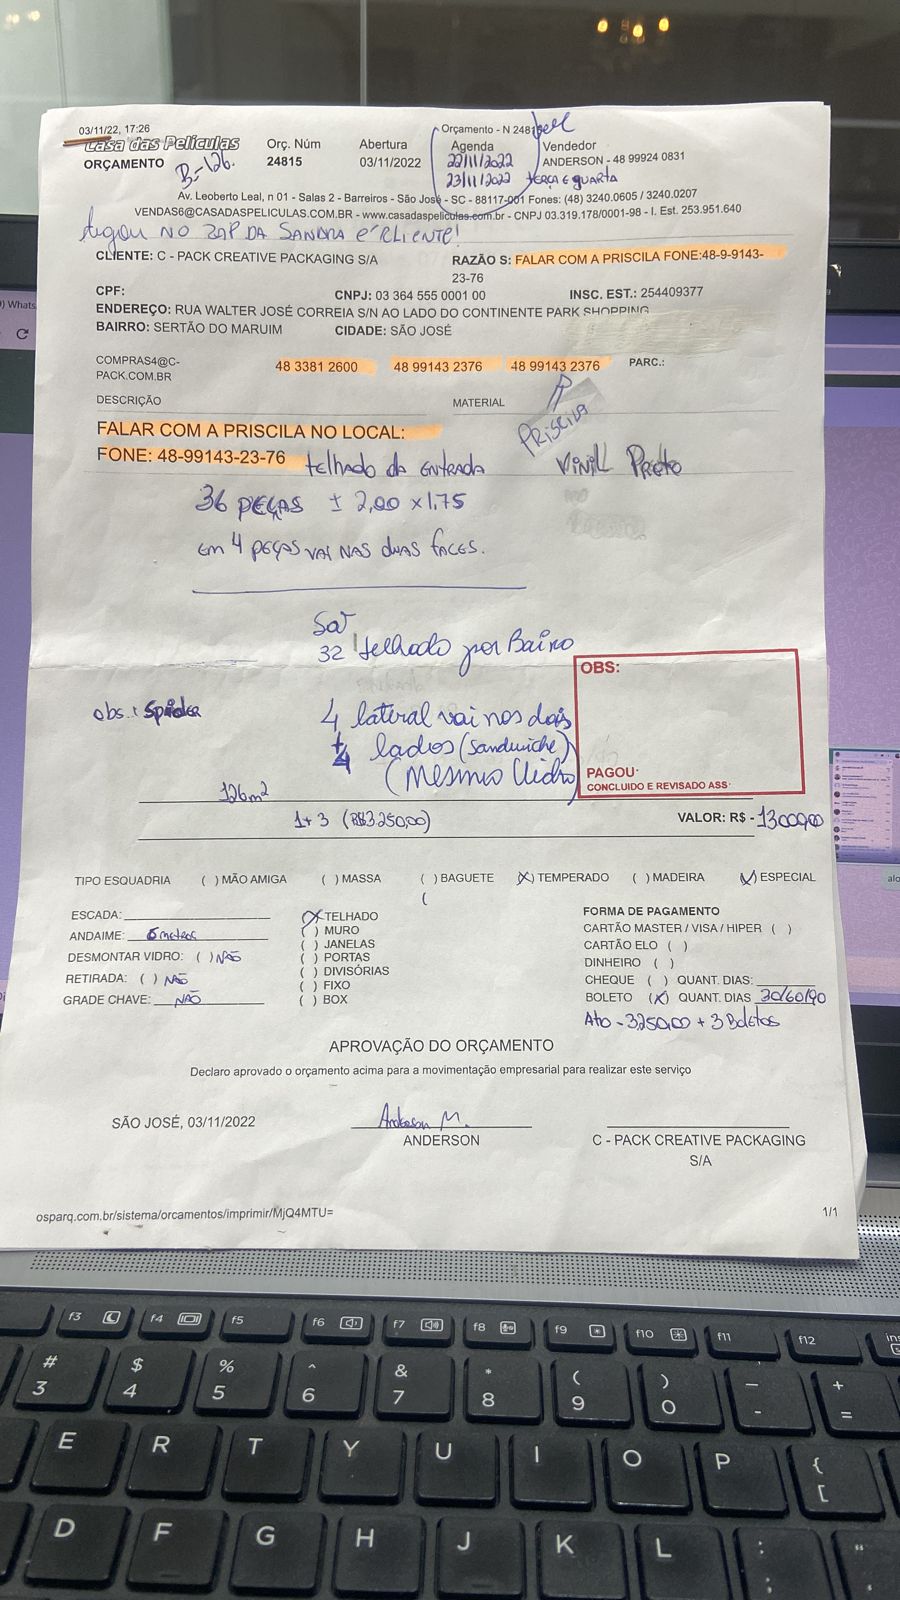 03/11/22, 17:26
Orçamento - N 2481
Casa das Películas
ORÇAMENTO
B-126.
Orç. Núm
24815
Abertura
03/11/2022
Agenda
22/11/2022
23/11/2022 TERÇA E QUARTA
Vendedor
ANDERSON - 48 99924 0831
Av. Leoberto Leal, n 01 - Salas 2 - Barreiros - São José - SC - 88117-001 Fones: (48) 3240.0605 / 3240.0207
VENDAS6@CASADASPELICULAS.COM.BR - www.casadaspeliculas.com.br - CNPJ 03.319.178/0001-98 - I. Est. 253.951.640
NO ZAP DA SANDRA É CLIENTE!
CLIENTE: C - PACK CREATIVE PACKAGING S/A
RAZÃO S: FALAR COM A PRISCILA FONE:48-9-9143-
23-76
CPF:
CNPJ: 03 364 555 0001 00
INSC. EST.: 254409377
ENDEREÇO: RUA WALTER JOSÉ CORREIA S/N AO LADO DO CONTINENTE PARK SHOPPING
BAIRRO: SERTÃO DO MARUIM
CIDADE: SÃO JOSÉ
COMPRAS4@C-
PACK.COM.BR
48 3381 2600
48 99143 2376
48 99143 2376
PARC.:
PRISCILA
DESCRIÇÃO
MATERIAL
FALAR COM A PRISCILA NO LOCAL:
FONE: 48-99143-23-76
telhado da ENTRADA
VINILL Preto
36 PEÇAS ± 2,00 x 1,75
Em 4 peças vai nas duas faces.
32 telhado por Baixo
obs: Spider
4 lateral vai nos dois
+4 lados (sandwiche)
(Mesmo Vidro)
OBS:
PAGOU:
CONCLUIDO E REVISADO ASS:
126m²
1+3 (R$3.250,00)
VALOR: R$ - 13000,00
TIPO ESQUADRIA ( ) MÃO AMIGA ( ) MASSA ( ) BAGUETE (X) TEMPERADO ( ) MADEIRA (✓) ESPECIAL
ESCADA:
ANDAIME: 6 metros
DESMONTAR VIDRO: ( ) NÃO
RETIRADA: ( ) NÃO
GRADE CHAVE: NÃO
(X) TELHADO
( ) MURO
( ) JANELAS
( ) PORTAS
( ) DIVISÓRIAS
( ) FIXO
( ) BOX
FORMA DE PAGAMENTO
CARTÃO MASTER / VISA / HIPER ( )
CARTÃO ELO ( )
DINHEIRO ( )
CHEQUE ( ) QUANT. DIAS:
BOLETO (X) QUANT. DIAS 30/60/90
Ato - 3250,00 + 3 Boletos
APROVAÇÃO DO ORÇAMENTO
Declaro aprovado o orçamento acima para a movimentação empresarial para realizar este serviço
SÃO JOSÉ, 03/11/2022
Anderson M.
ANDERSON
C - PACK CREATIVE PACKAGING
S/A
osparq.com.br/sistema/orcamentos/imprimir/MjQ4MTU=
1/1
f3 f4 f5 f6 f7 f8 f9 f10 f11 f12 ins
# 3 $ 4 % 5 ^ 6 & 7 * 8 ( 9 ) 0 _ - + =
E R T Y U I O P { [
D F G H J K L : ;